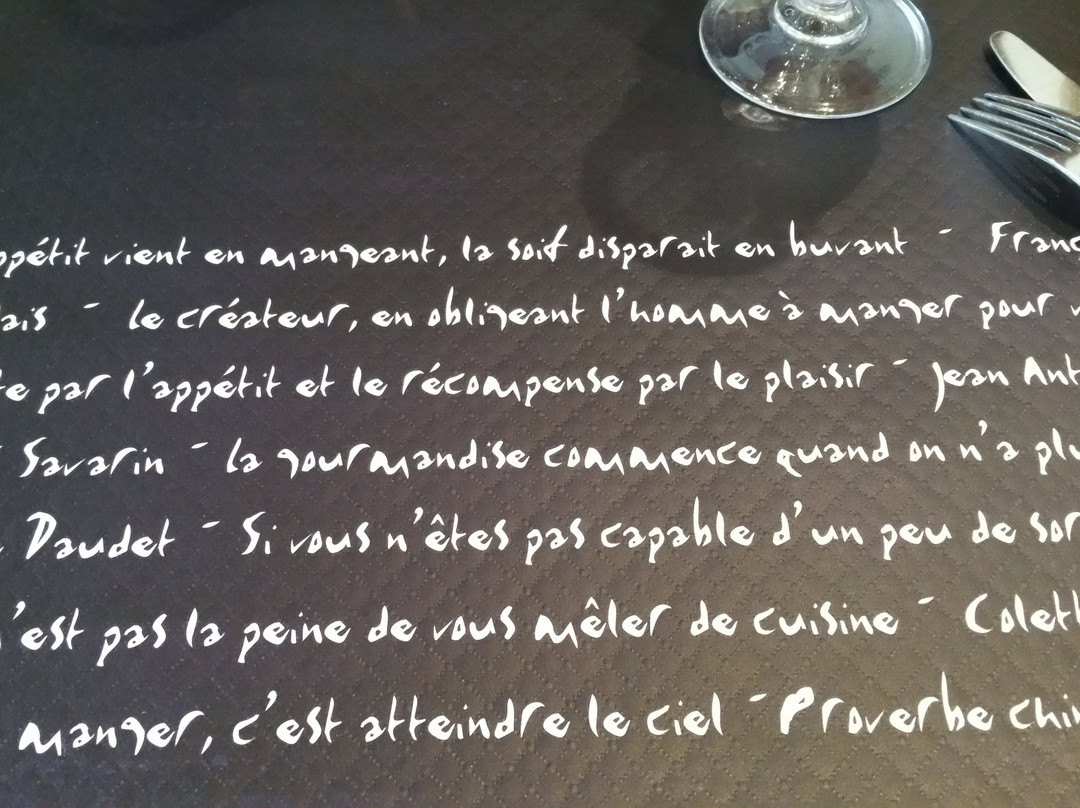 ppétit vient en mangeant, la soif disparait en buvant - Franç
ais - le créateur, en obligeant l'homme à manger pour v
te par l'appétit et le récompense par le plaisir - Jean Ant
Savarin - la gourmandise commence quand on n'a plu
Daudet - Si vous n'êtes pas capable d'un peu de sor
n'est pas la peine de vous mêler de cuisine - Colett
manger, c'est atteindre le ciel - Proverbe chin